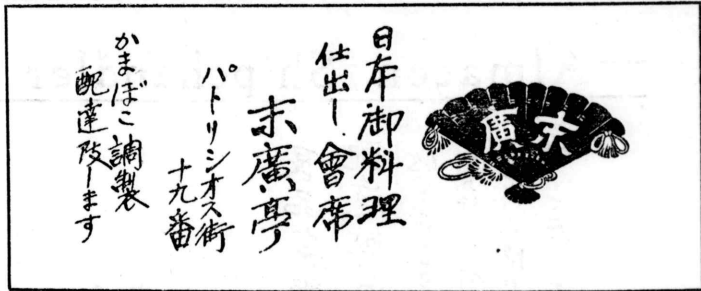 末廣
日本御料理
仕出し 會席
末廣亭
パトリシオス街
十九番
かまぼこ調製
配達致します